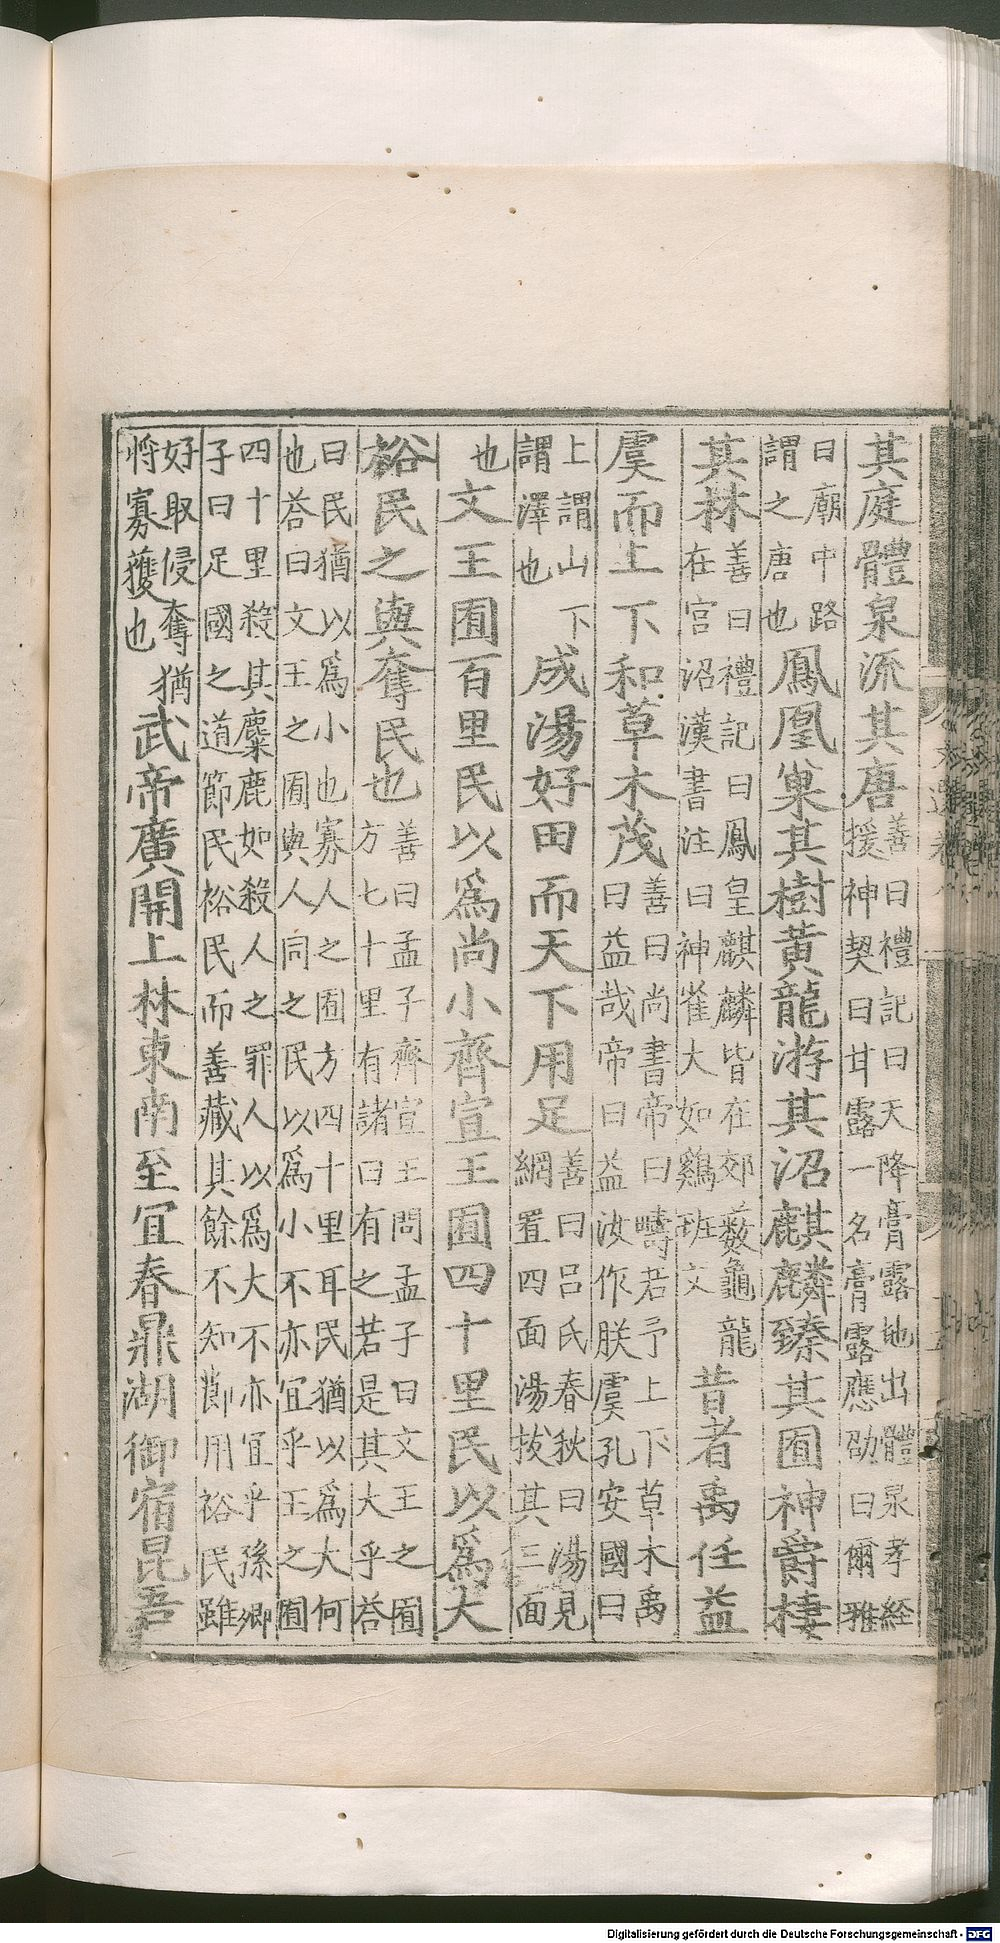 其庭體泉流其唐善曰禮記曰天降膏露地出體泉孝経援神契曰甘露一名膏露應劭曰爾雅
曰廟中路謂之唐也鳳凰巢其樹黃龍游其沼麒麟臻其囿神爵棲
其林善曰禮記曰鳳皇麒麟皆在郊薮龜龍在宮沼漢書注曰神雀大如鷄班文昔者禹任益
虞而上下和草木茂善曰尚書帝曰疇若予上下草木禹曰益哉帝曰益汝作朕虞孔安國曰
上謂山下謂澤也成湯好田而天下用足善曰吕氏春秋曰湯見網置四面湯拔其三面
也文王囿百里民以爲尚小齊宣王囿四十里民以爲大
裕民之與奪民也善曰孟子齊宣王問孟子曰文王之囿方七十里有諸曰有之若是其大乎荅
曰民猶以爲小也寡人之囿方四十里耳民猶以爲大何也荅曰文王之囿與人同之民以爲小不亦宜乎王之囿
四十里殺其麋鹿如殺人之罪人以爲大不亦宜乎孫卿子曰足國之道節民裕民而善藏其餘不知節用裕民雖
好取侵奪猶將寡獲也武帝廣開上林東南至宜春鼎湖御宿昆吾
Digitalisierung gefördert durch die Deutsche Forschungsgemeinschaft - DFG